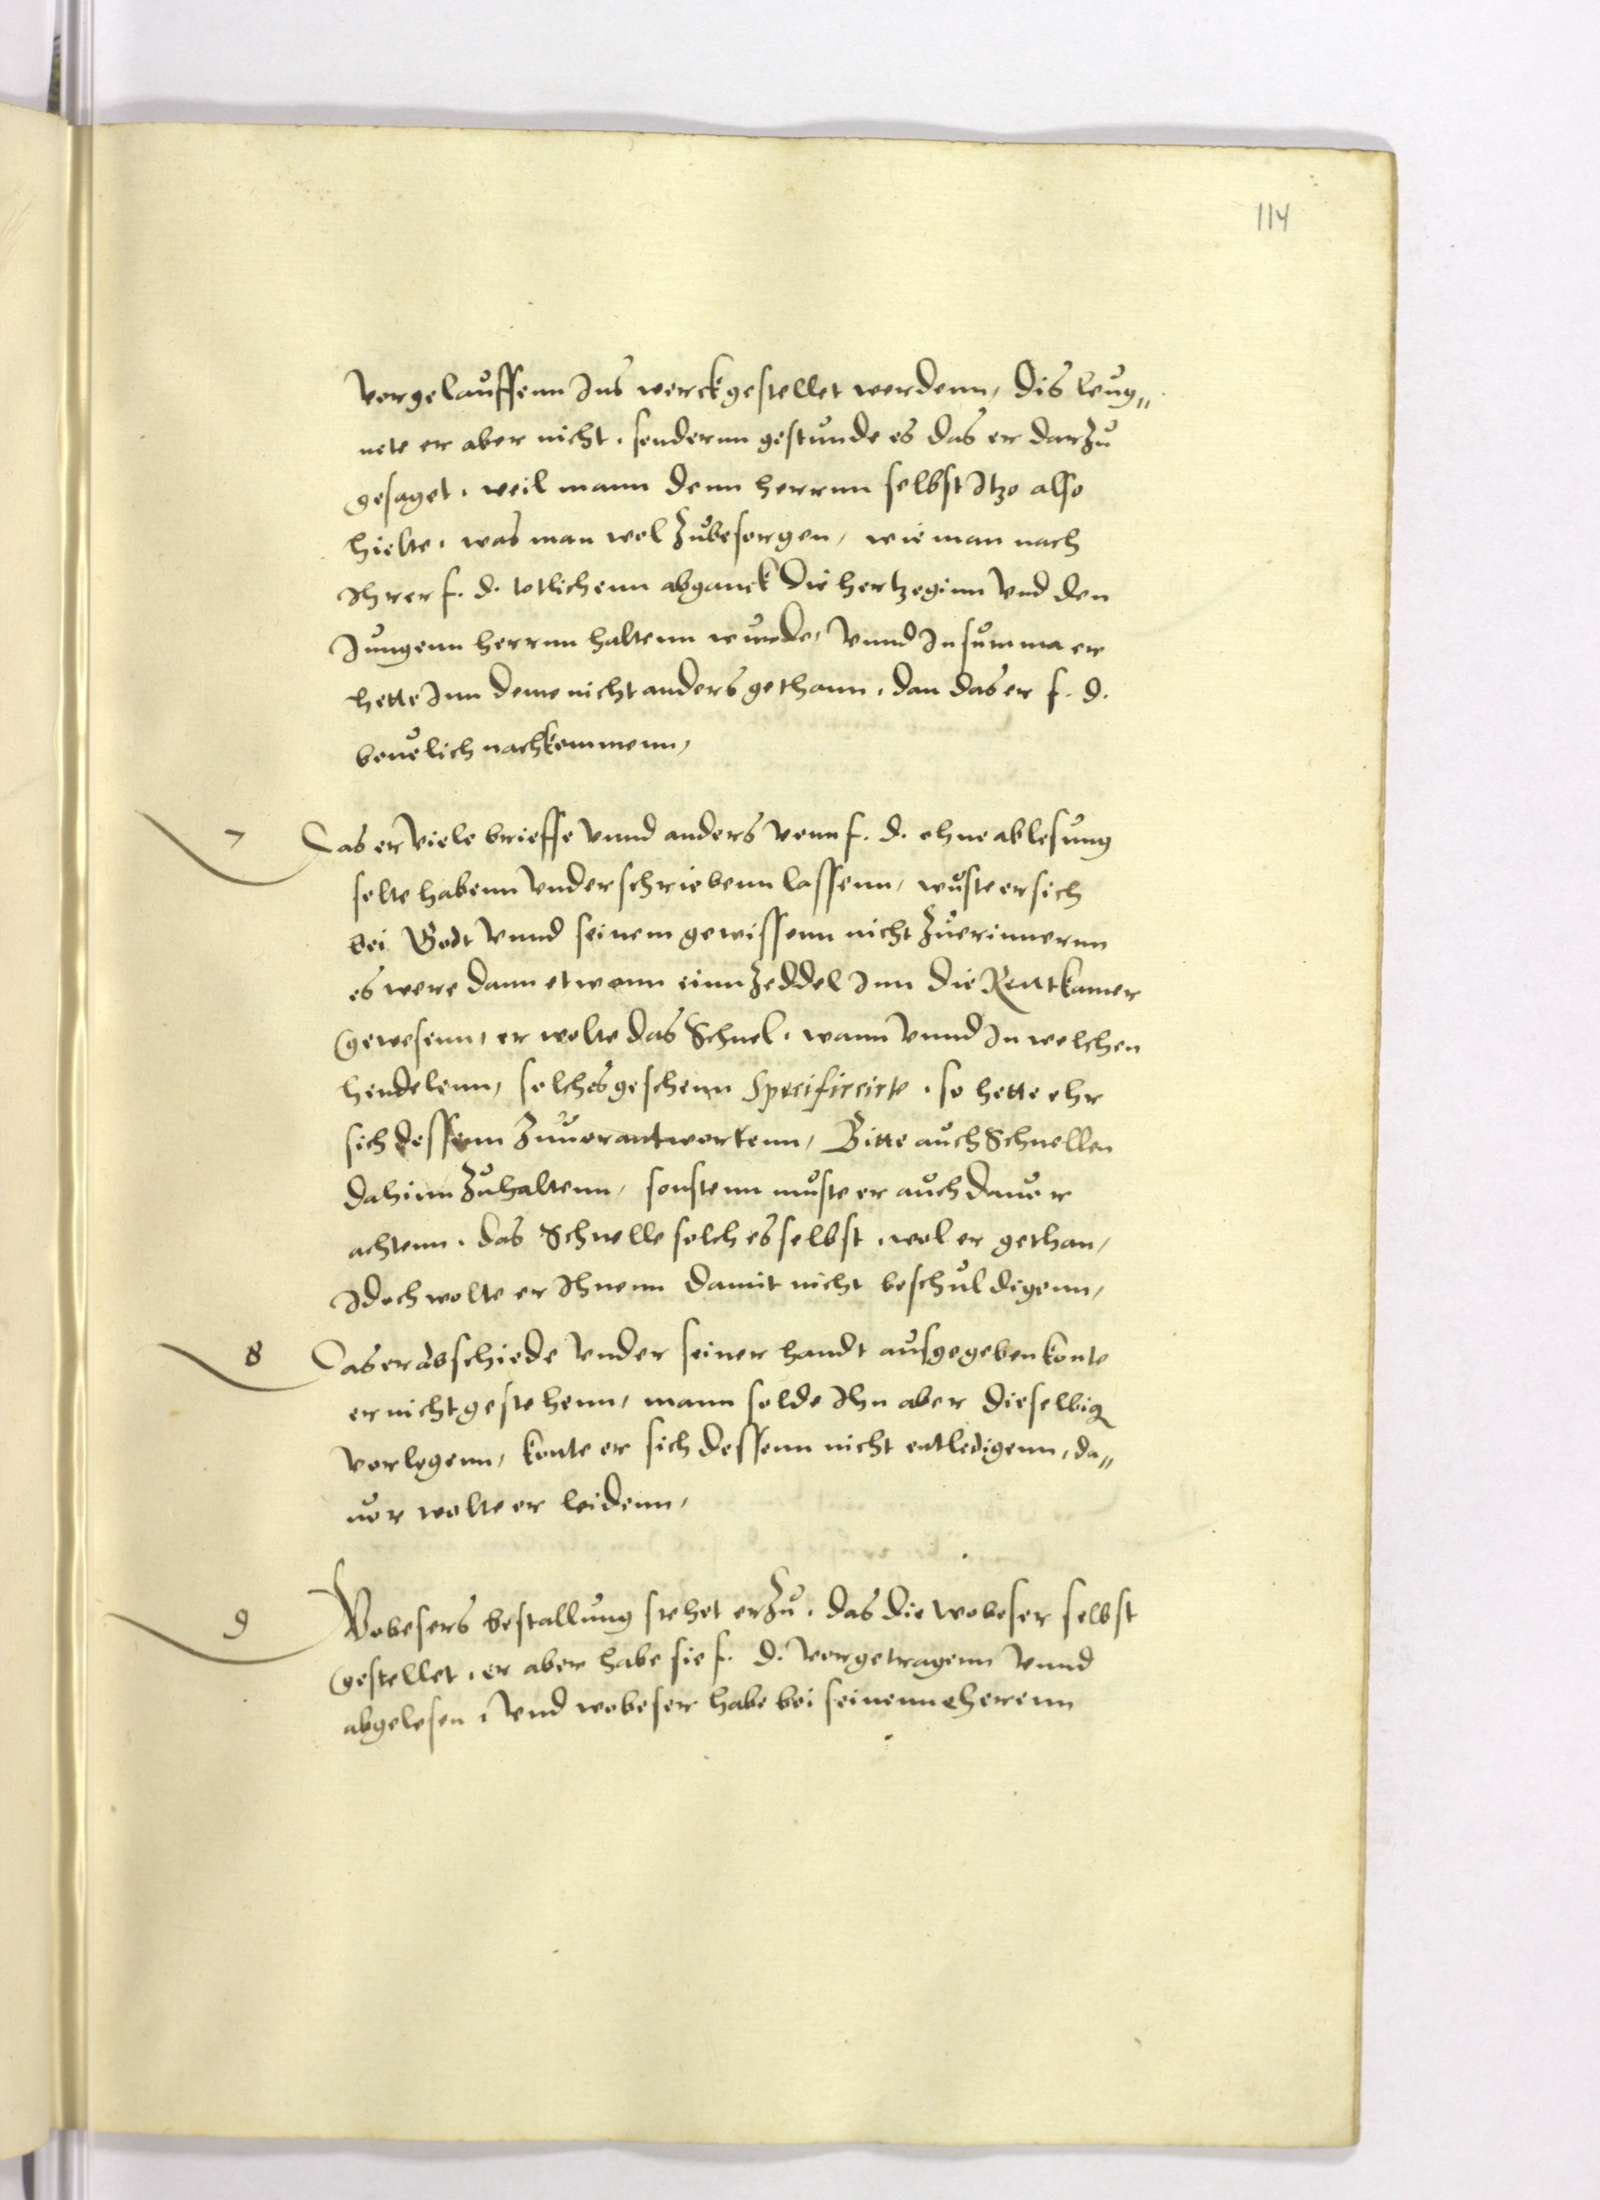 114
vorgelauffenn Ins werck gestellet werdenn, dis leug„
nete er aber nicht, sonderun gestunde es das er darzu
gesaget, weil mann denn herrnn selbst Itzo also
hielte, was man wol zubesorgen, wie man nach
Ihrer f. d. totlichenn abganck die hertzoginn vnd den
Jungenn herrnn haltenn wurde, vnnd In summa er
hette Inn deme nicht anders gethann, dan das er f. d.
beuelich nachkommenn,
7 Das er viele brieffe vnnd anders vonn f. d. ohne ablesung
solte habenn vnderschriebenn lassenn, wuste er sich
bei Godt vnnd seinem gewissenn nicht zuerinnernn
es were dann etwann einn zeddel Inn die Rentkamer
gewesenn, er wolte das Schnel, wann vnnd In welchen
hendelenn, solches geschenn Specificirte, so hette ehr
sich dessenn zuuorantwortenn, Bitte auch Schnellen
dahinn zuhaltenn, sonstenn muste er auch dauor
achtenn, das Schnelle solches selbst, wol er gethan,
Idoch wolte er Ihnenn damit nicht beschuldigenn,
8 Das er abschiede vnder seiner handt ausgegeben konte
er nicht gestehenn, mann solde Ihn aber dieselbig
vorlegenn, konte er sich dessenn nicht entledigenn, da„
uor wolte er leidenn,
9 Wobesers bestallung stehet er zu, das die wobeser selbst
gestellet, er aber habe sie f. d. vorgetragenn vnnd
abgelesen, vnd wobeser habe bei seinenn eherenn